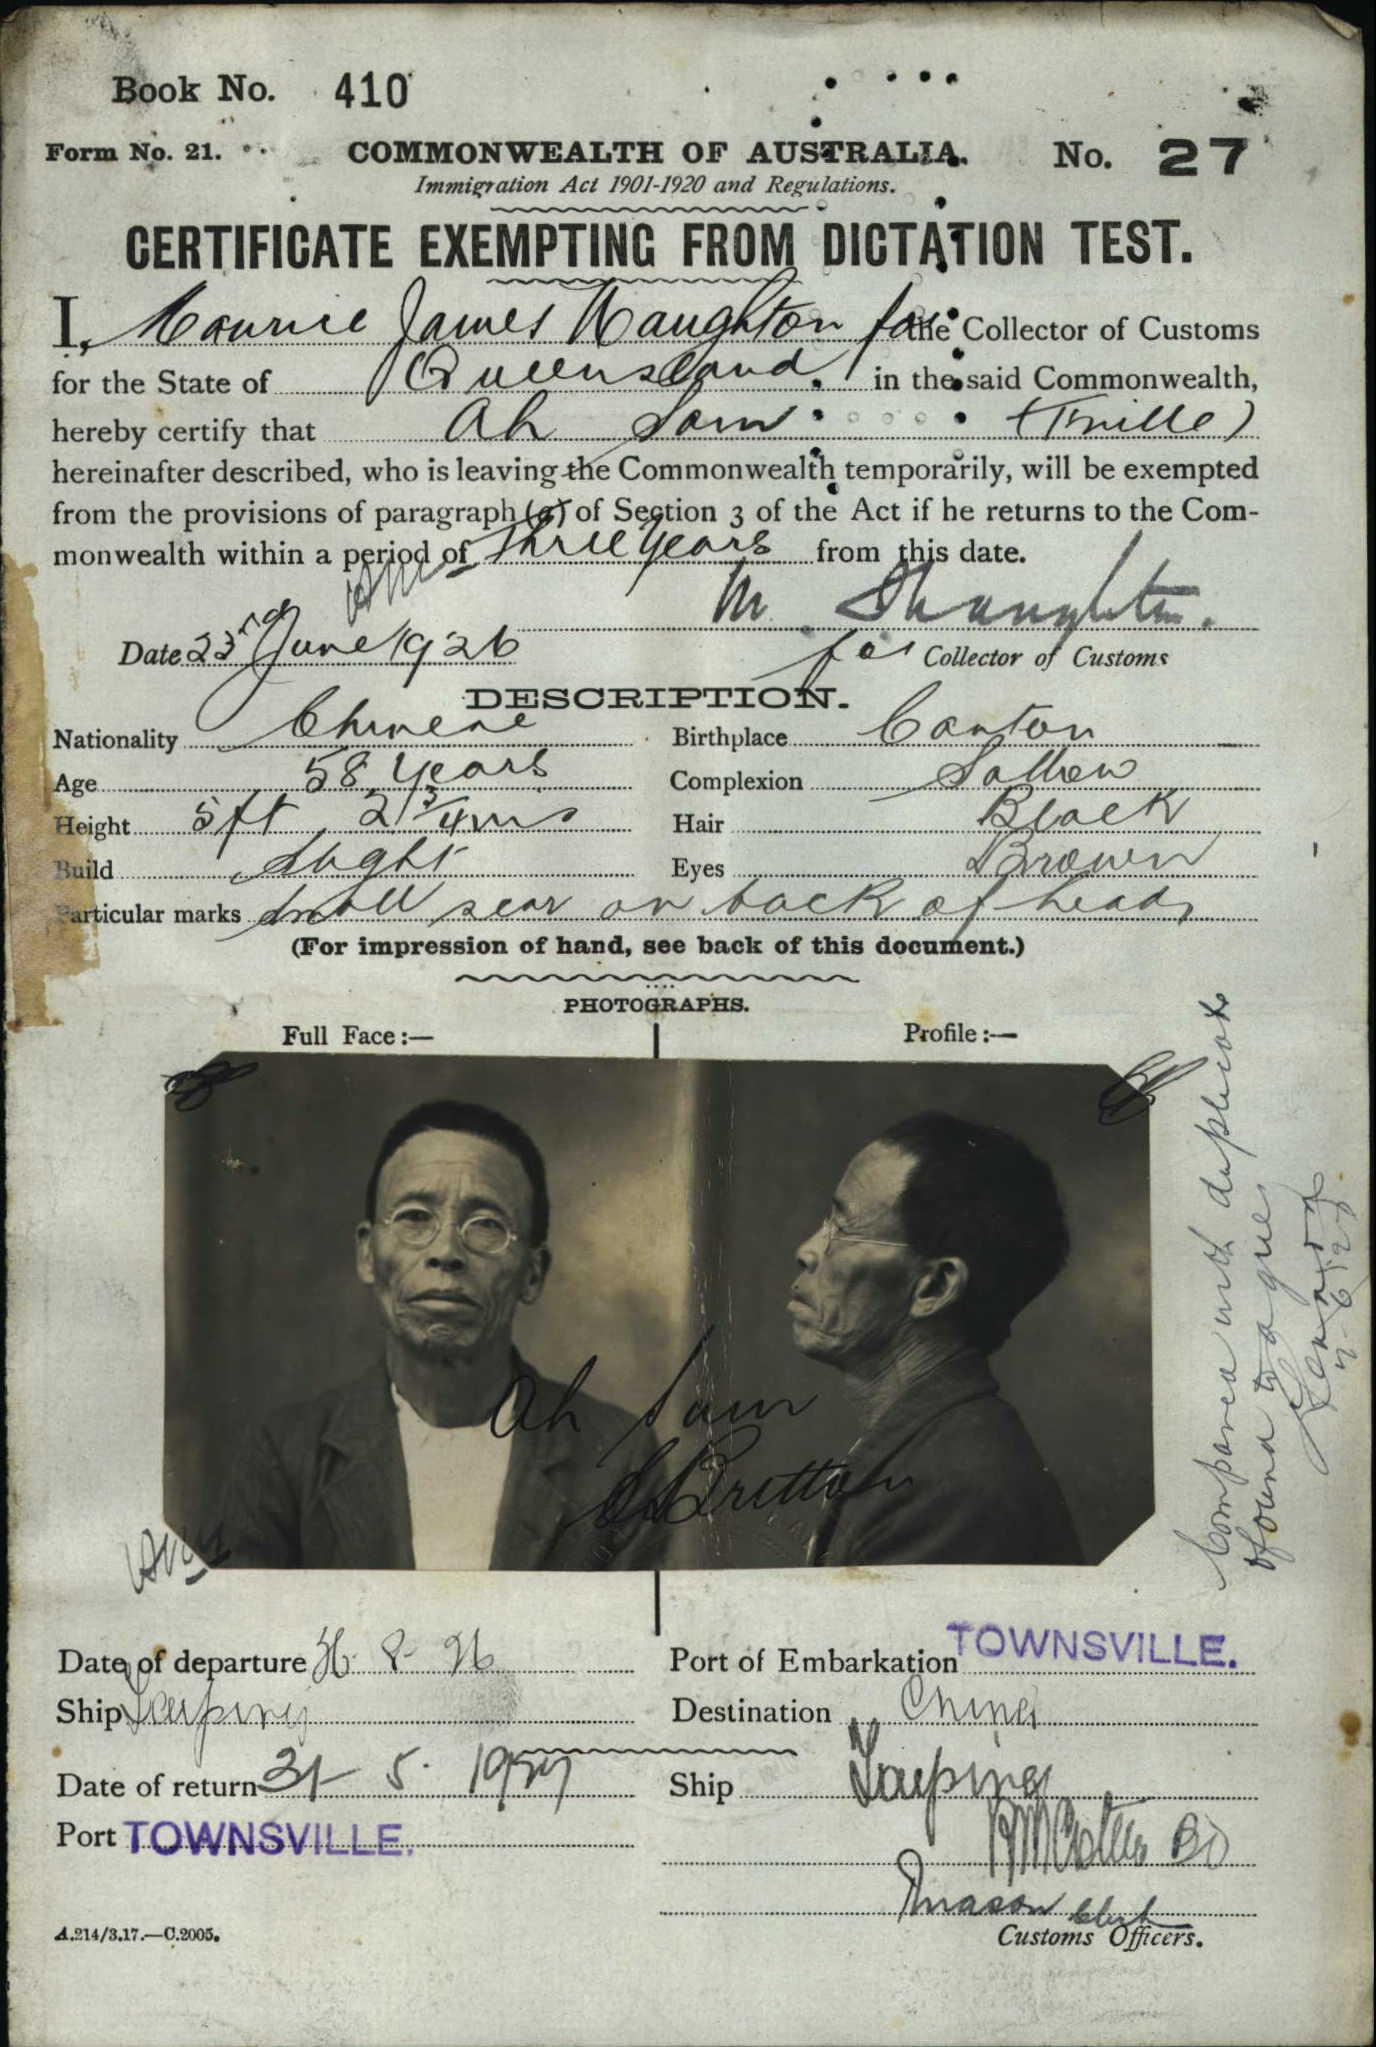 Book No. 410
Form No. 21. COMMONWEALTH OF AUSTRALIA. No. 27
Immigration Act 1901-1920 and Regulations.
CERTIFICATE EXEMPTING FROM DICTATION TEST.
I, Maurice James Naughton for the Collector of Customs
for the State of Queensland in the said Commonwealth,
hereby certify that Ah Sam (T'ville)
hereinafter described, who is leaving the Commonwealth temporarily, will be exempted
from the provisions of paragraph (a) of Section 3 of the Act if he returns to the Com-
monwealth within a period of Three Years from this date.
Date 23rd June 1926
for Collector of Customs
DESCRIPTION.
Nationality Chinese Birthplace Canton
Age 58 Years Complexion Sallow
Height 5ft 2 3/4 ins Hair Black
Build Slight Eyes Brown
Particular marks Small scar on back of head
(For impression of hand, see back of this document.)
PHOTOGRAPHS.
Full Face:— Profile:—
Ah Sam
Britton
Compared with duplicate
found to agree
Date of departure 8-26 Port of Embarkation TOWNSVILLE.
Ship Taiping Destination China
Date of return 31 5. 1927 Ship Taiping
Port TOWNSVILLE.
Mason Clerk
A.214/3.17.—C.2005. Customs Officers.